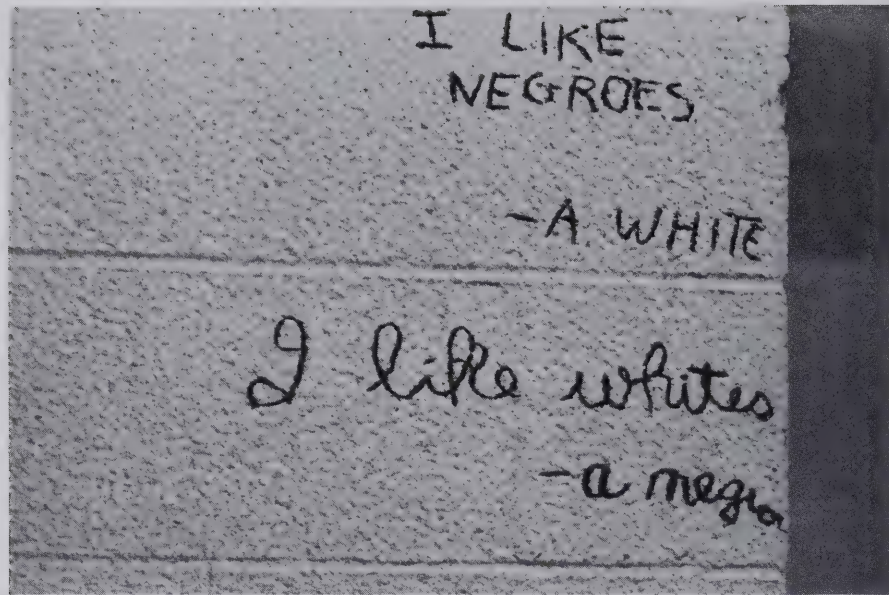 I LIKE
NEGROES
-A WHITE
I like whites
-a negro